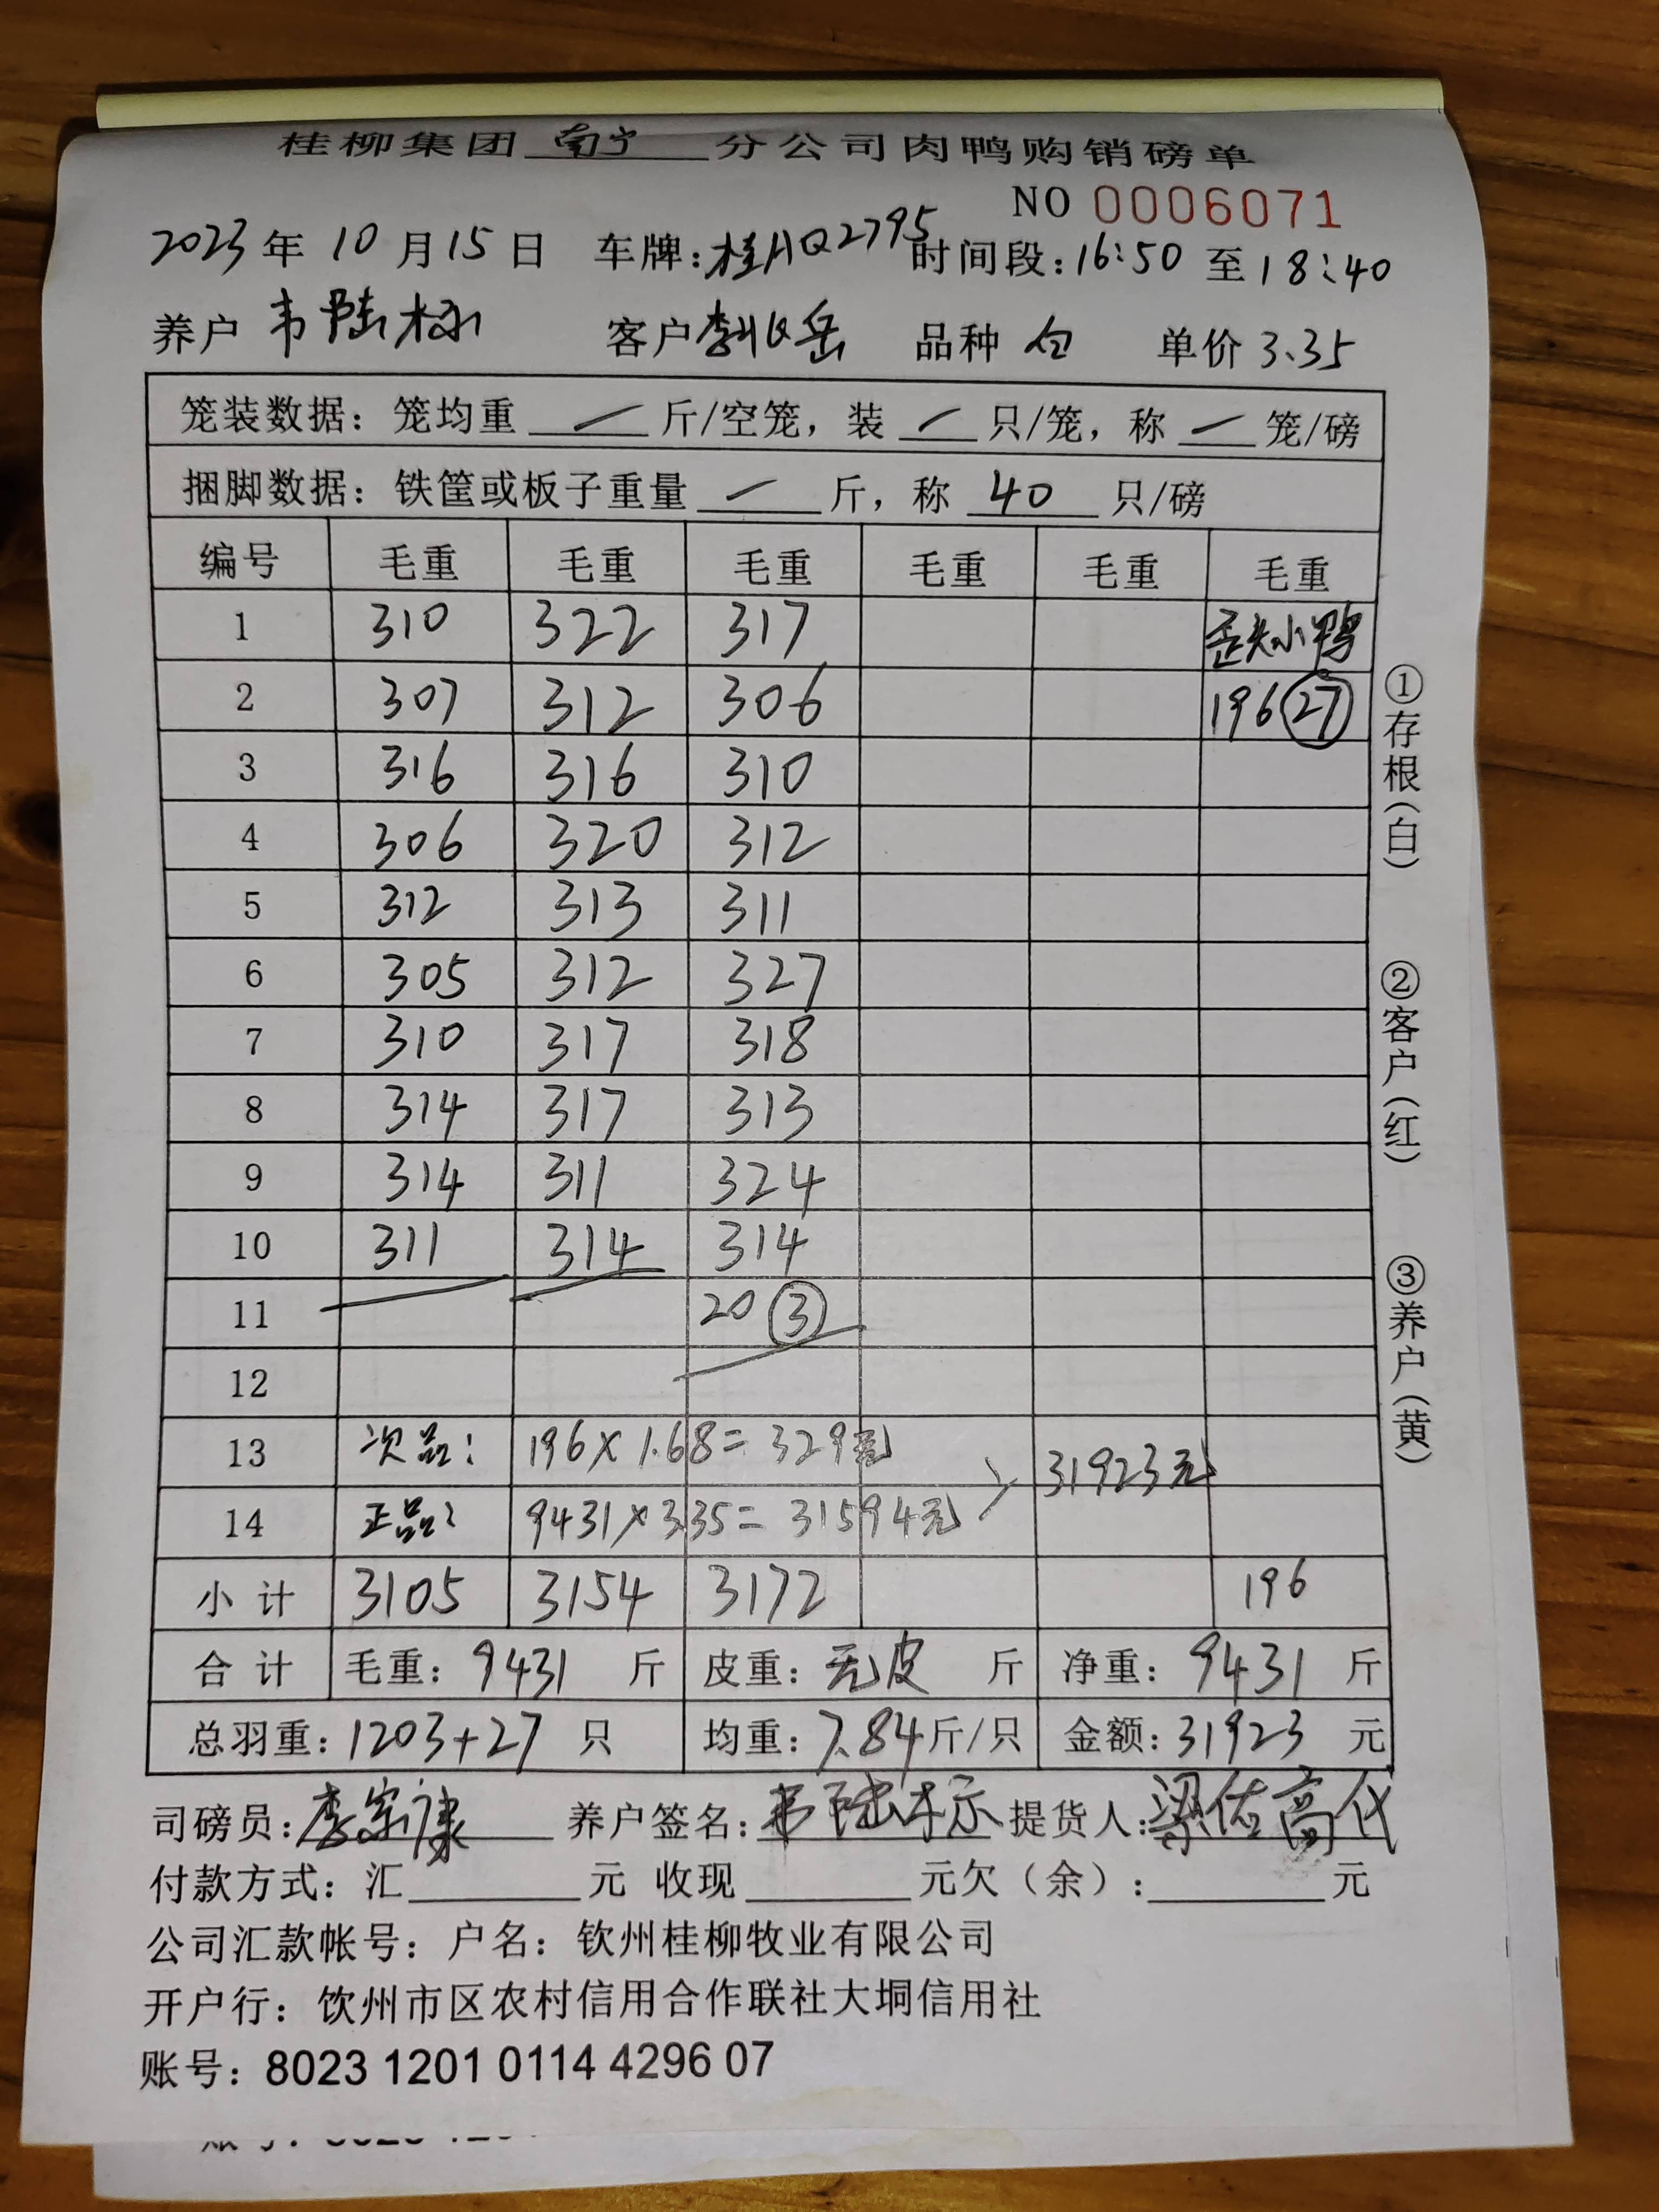 桂柳集团 南宁 分公司肉鸭购销磅单
NO 0006071
2023年10月15日 车牌:桂AQ2795 时间段:16:50至18:40
养户 韦陆标 客户 岳 品种 白 单价 3.35
笼装数据: 笼均重 — 斤/空笼, 装 — 只/笼, 称 — 笼/磅
捆脚数据: 铁筐或板子重量 — 斤, 称 40 只/磅
编号 毛重 毛重 毛重 毛重 毛重 毛重
1 310 322 317 歪头小鸭
2 307 312 306 196 27
3 316 316 310
4 306 320 312
5 312 313 311
6 305 312 327
7 310 317 318
8 314 317 313
9 314 311 324
10 311 314 314
11 20 3
12
13 次品: 196×1.68=329元
31923元
14 正品: 9431×3.35=31594元
小计 3105 3154 3172 196
合计 毛重: 9431 斤 皮重: 无皮 斤 净重: 9431 斤
总羽重: 1203+27 只 均重: 7.84斤/只 金额: 31923 元
司磅员: 李宗谦 养户签名: 韦陆标 提货人: 梁佐高代
付款方式: 汇 元 收现 元欠(余): 元
公司汇款帐号: 户名: 钦州桂柳牧业有限公司
开户行: 饮州市区农村信用合作联社大垌信用社
账号: 8023 1201 0114 4296 07
①存根(白)
②客户(红)
③养户(黄)